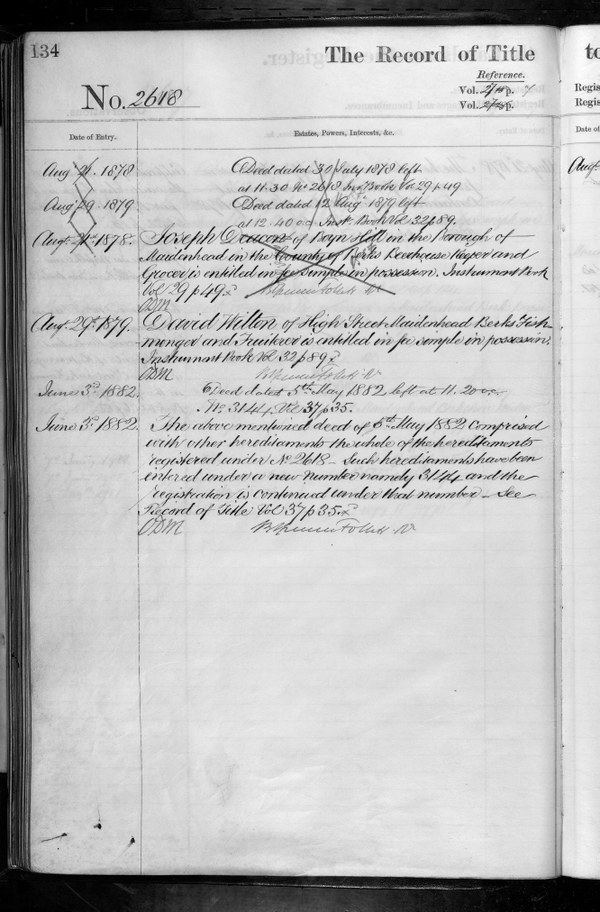 134
The Record of Title
to
Reference.
No. 2618
Vol. p.
Regis
Vol. p.
Regis
Date of Entry.
Estates, Powers, Interests, &c.
Date of
Aug 21. 1878
Deed dated 30 July 1878 left
at 11.30 No 2618 Inst Book Vol 29 p 49
Aug 29. 1879
Deed dated 12 Aug 1879 left
at 12.40 Inst Book Vol 32 p 89.
Augt 21st 1878.
Joseph Deacon of Boyn Hill in the Borough of
Maidenhead in the County of Berks Beerhouse Keeper and
Grocer is entitled in fee simple in possession. Instrument Book
Vol 29 p 49.
ODM
Aug. 29th 1879.
David Wilton of High Street Maidenhead Berks Fish-
monger and Fruiterer is entitled in fee simple in possession.
Instrument Book Vol 32 p 89.
ODM
June 3rd 1882.
Deed dated 5th May 1882 left at 11.20
No. 3144 Vol 37 p 35.
June 3rd 1882.
The above mentioned deed of 5th May 1882 comprised
with other hereditaments the whole of the hereditaments
registered under No 2618 – Such hereditaments have been
entered under a new number namely 3144 and the
registration is continued under that number – See
Record of Title Vol 37 p 35.
ODM